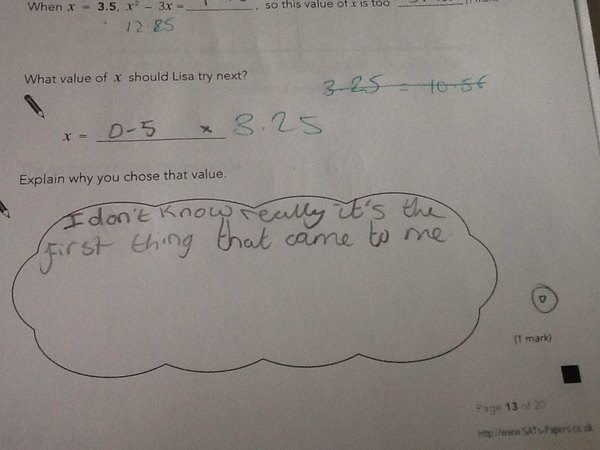 When x = 3.5, x² - 3x = , so this value of x is too
12.25
What value of x should Lisa try next?
3.25 = 10.56
x = 0-5 × 3.25
Explain why you chose that value.
I don't know really it's the
first thing that came to me.
(1 mark)
Page 13 of 20
http://www.SATs-Papers.co.uk